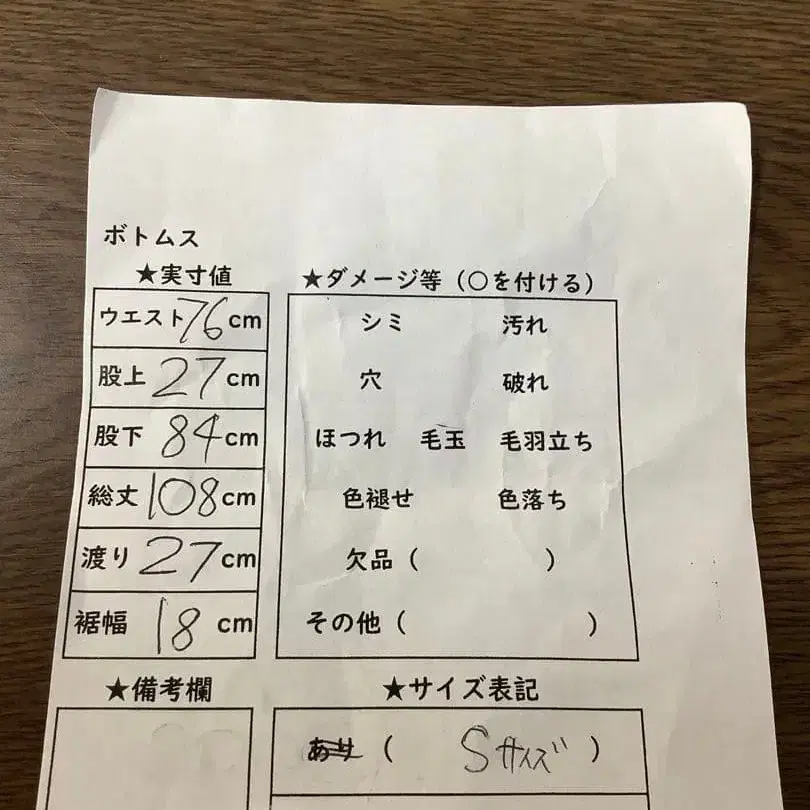 ボトムス
★実寸値
ウエスト76cm
股上 27cm
股下 84cm
総丈 108cm
渡り 27cm
裾幅 18cm
★ダメージ等（○を付ける）
シミ 汚れ
穴 破れ
ほつれ 毛玉 毛羽立ち
色褪せ 色落ち
欠品（ ）
その他（ ）
★備考欄
★サイズ表記
あり（ Sサイズ ）